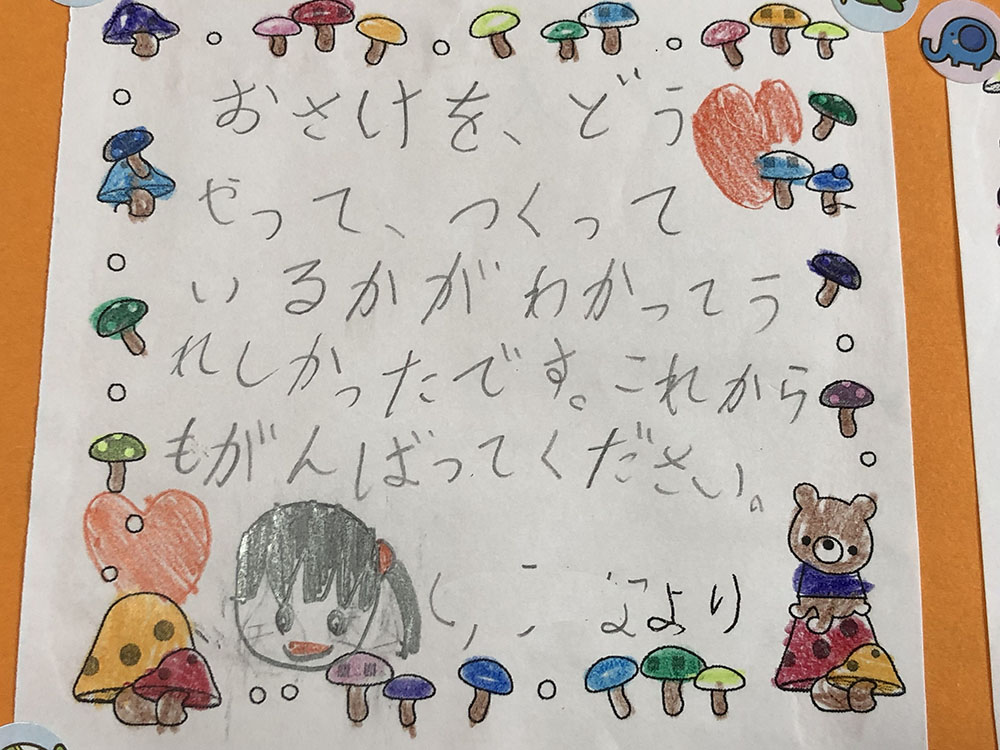 おさけを、どう
やって、つくって
いるかがわかってう
れしかったです。これから
もがんばってください。
より